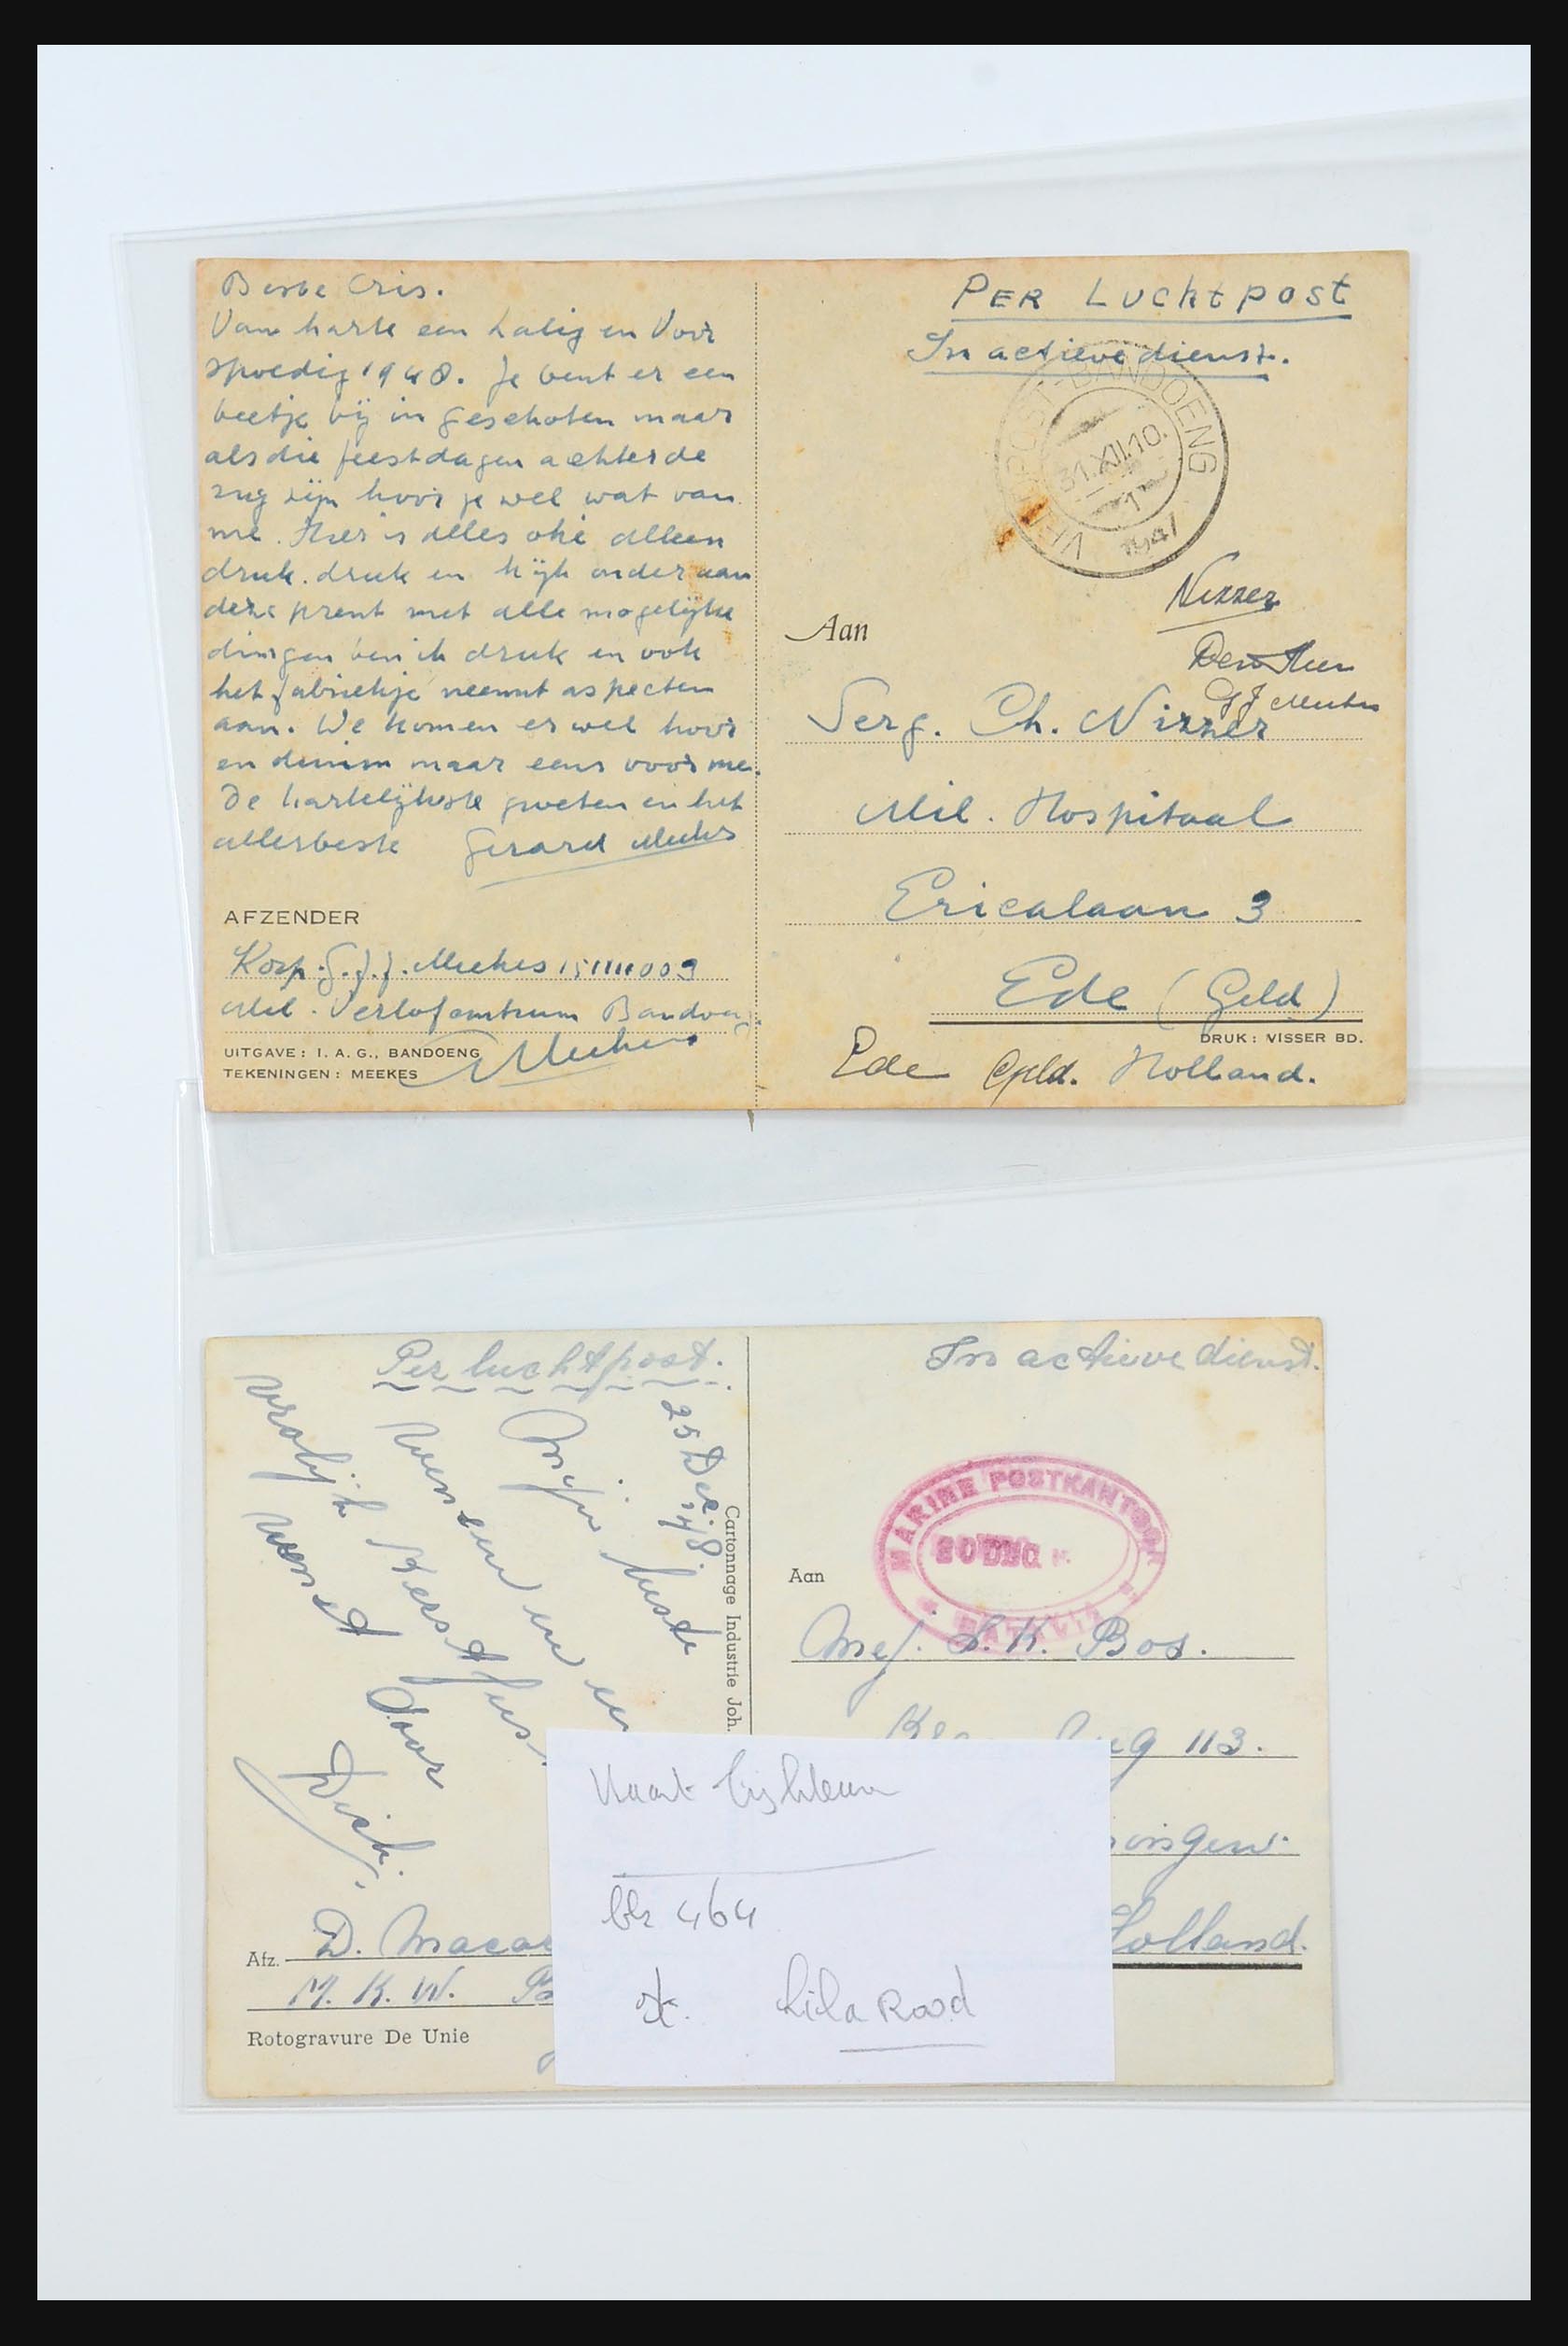 Beste Cris.
Van harte een Zalig en Voor
spoedig 1948. Je bent er een
beetje bij in geschoten maar
als die feestdagen achter de
rug zijn hoor je wel wat van
me. Hier is alles oké alleen
druk. druk en kijk onder aan
deze prent met alle mogelijke
dingen ben ik druk en ook
het fabriekje neemt aspecten
aan. We komen er wel hoor
en duim maar eens voor me.
De hartelijkste groeten en het
allerbeste Gerard Meekes
AFZENDER
Korp. G.J.J. Meekes 151111009
Mil. Verlofcentrum Bandoeng
UITGAVE: I. A. G., BANDOENG
TEKENINGEN: MEEKES
Meekes
PER LUCHTPOST
In actieve dienst.
VELDPOST-BANDOENG
31.XII.10.
1
1947
Nizzer
Den Heer
GJ Meekes
Aan
Serg. Ch. Nizzer
Mil. Hospitaal
Ericalaan 3
Ede (Geld)
DRUK: VISSER BD.
Ede Geld. Holland.
Per luchtpost.
25 Dec '48.
Mijn beste
wensen en een
vrolijk Kerstfeest
wenst door
Dick.
Cartonnage Industrie Joh.
Afz. D. Maca
M. K. W.
Rotogravure De Unie
In actieve dienst.
MARINE POSTKANTOOR
20 DEC
BATAVIA
Aan
Mej. S. K. Bos.
ug 113.
ingen.
Holland.
Kaart bijkleuren
blz 464
Lila Rood